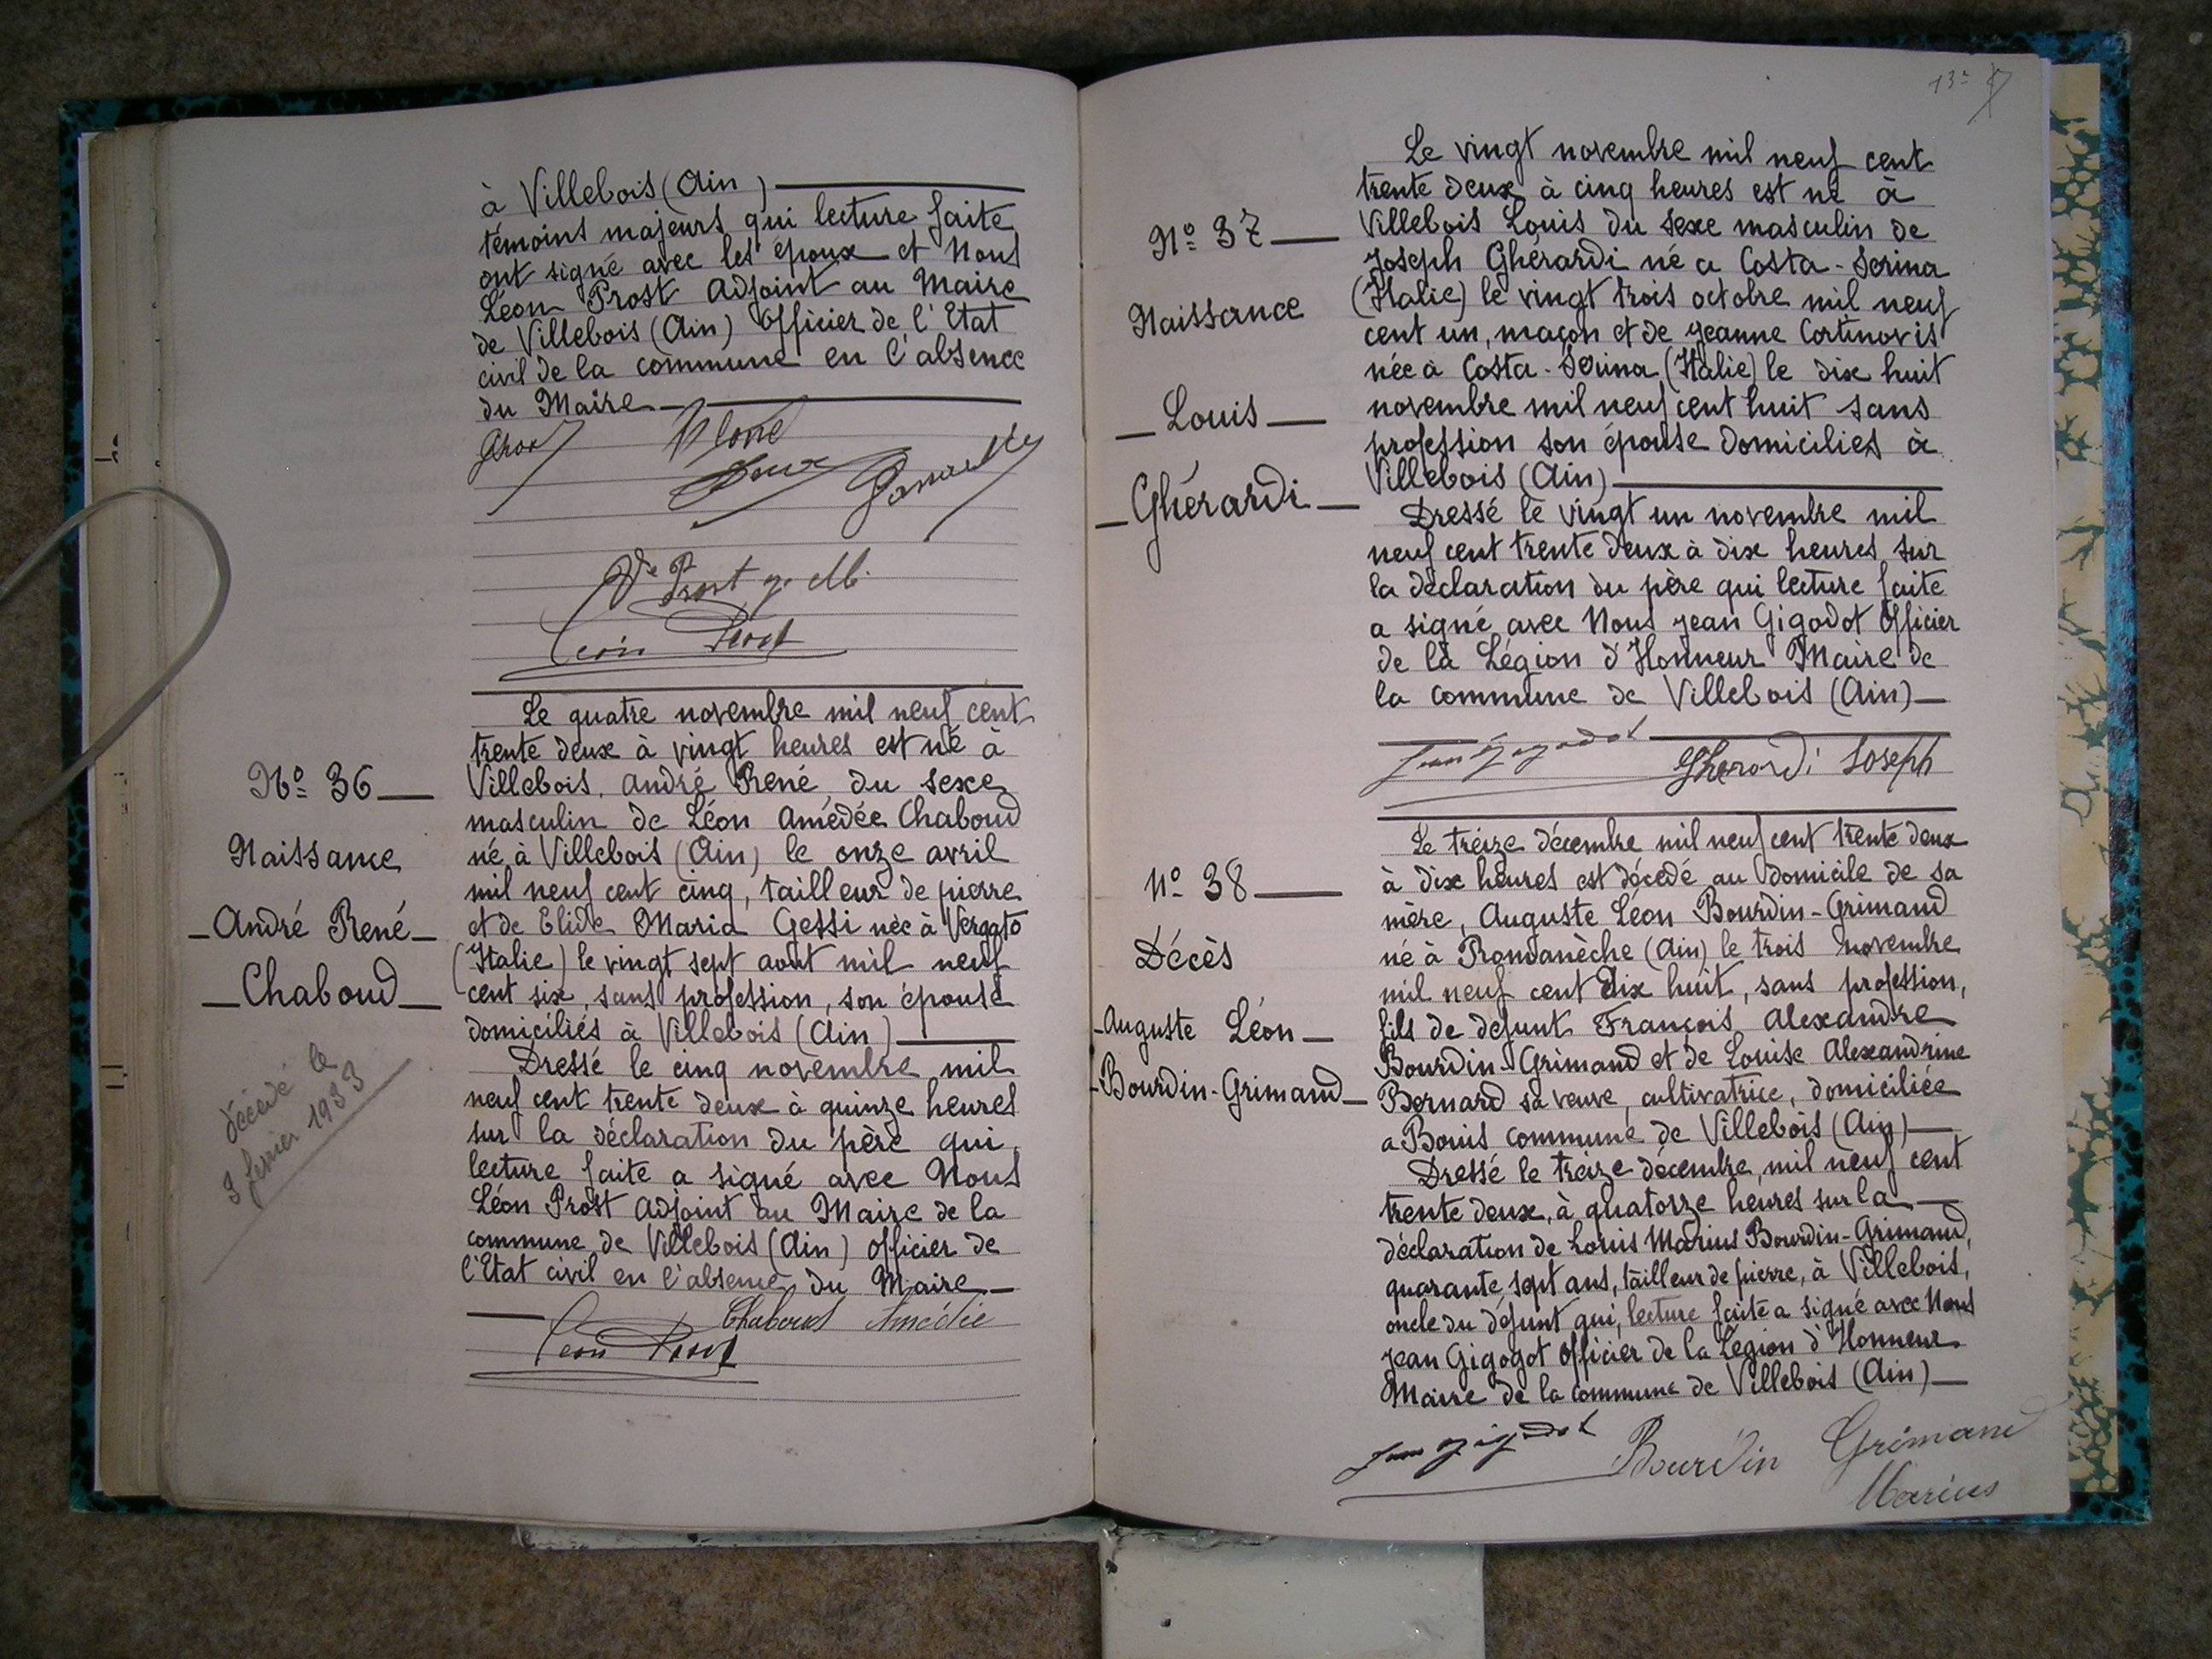 à Villebois (Ain)
témoins majeurs qui lecture faite
ont signé avec les époux et Nous
Léon Prost Adjoint au Maire
de Villebois (Ain) Officier de l'Etat
civil de la commune en l'absence
du Maire
Vve Prost
Léon Prost
Nº 36
Naissance
André René
Chaboud
décédé le
3 fevrier 1933
Le quatre novembre mil neuf cent
trente deux à vingt heures est né à
Villebois, André René du sexe
masculin de Léon Amédée Chaboud
né à Villebois (Ain) le onze avril
mil neuf cent cinq, tailleur de pierre
et de Elide Maria Gessi née à Vergato
(Italie) le vingt sept aout mil neuf
cent six, sans profession, son épouse
domiciliés à Villebois (Ain)
Dressé le cinq novembre mil
neuf cent trente deux à quinze heures
sur la déclaration du père qui,
lecture faite a signé avec Nous
Léon Prost Adjoint au Maire de la
commune de Villebois (Ain) officier de
l'Etat civil en l'absence du Maire
Chaboud Amédée
Léon Prost
13
Nº 37
Naissance
Louis
Ghérardi
Le vingt novembre mil neuf cent
trente deux à cinq heures est né à
Villebois Louis du sexe masculin de
Joseph Ghérardi né a Costa-Serina
(Italie) le vingt trois octobre mil neuf
cent un, maçon et de Jeanne Cortinovis
née à Costa-Serina (Italie) le dix huit
novembre mil neuf cent huit sans
profession son épouse domiciliés à
Villebois (Ain)
Dressé le vingt un novembre mil
neuf cent trente deux à dix heures sur
la déclaration du père qui lecture faite
a signé avec Nous Jean Gigodot Officier
de la Légion d'Honneur Maire de
la commune de Villebois (Ain)
Jean Gigodot Gherardi Joseph
Nº 38
Décès
Auguste Léon
Bourdin-Grimaud
Le treize décembre mil neuf cent trente deux
à dix heures est décedé au domicile de sa
mère, Auguste Léon Bourdin-Grimaud
né à Romanèche (Ain) le trois novembre
mil neuf cent dix huit, sans profession,
fils de defunt François Alexandre
Bourdin-Grimaud et de Louise Alexandrine
Bernard sa veuve, cultivatrice, domiciliée
a Bouis commune de Villebois (Ain)
Dressé le treize décembre, mil neuf cent
trente deux, à quatorze heures sur la
déclaration de Louis Marius Bourdin-Grimaud,
quarante sept ans, tailleur de pierre, à Villebois,
oncle du défunt qui, lecture faite a signé avec Nous
Jean Gigogot Officier de la Légion d'Honneur
Maire de la commune de Villebois (Ain)
Jean Gigodot Bourdin Grimaud
Marius